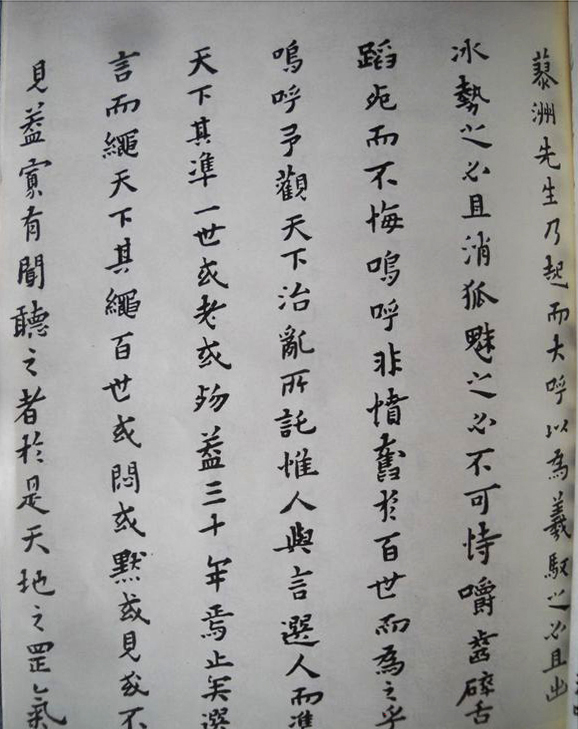 藜洲先生乃起而大呼以為羲馭之必且出
冰勢之必且消狐魅之必不可恃嚼齒碎舌
蹈死而不悔嗚呼非憤舊於百世而為之乎
嗚呼予觀天下治亂所託惟人與言選人而準
天下其準一世或老或殀蓋三十年焉止矣選
言而繩天下其繩百世或悶或默或見或不
見蓋實有聞聽之者於是天地之罡氣